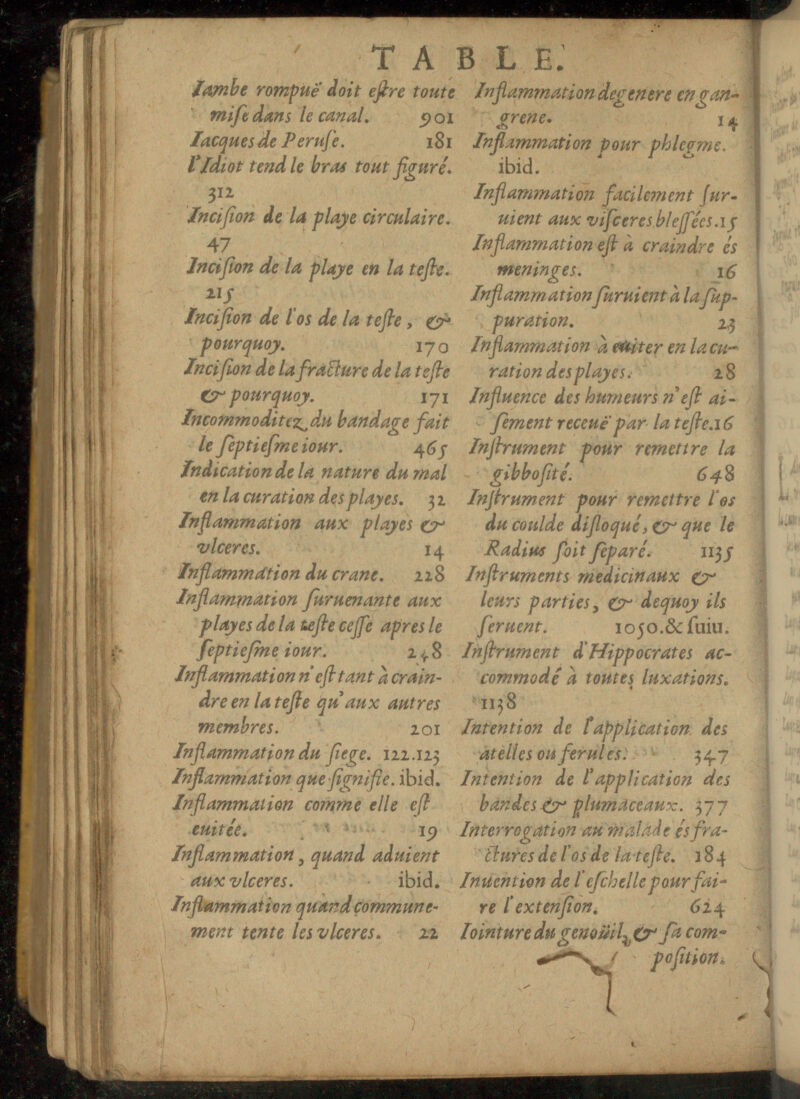 TABLE.
Iambe rompuë doit eſtre toute
miſe dans le canal. 901
Iacques de Peruſe. 181
l'Idiot tend le bras tout figuré.
312
Inciſion de la playe circulaire.
47
Inciſion de la playe en la teſte.
215
Inciſion de l'os de la teſte, &
pourquoy. 170
Inciſion de la fracture de la teſte
& pourquoy. 171
Incommoditez du bandage fait
le ſeptieſme iour. 465
Indication de la nature du mal
en la curation des playes. 32
Inflammation aux playes &
vlceres. 14
Inflammation du crane. 228
Inflammation ſuruenante aux
playes de la teſte ceſſe apres le
ſeptieſme iour. 248
Inflammation n'eſt tant à crain-
dre en la teſte qu'aux autres
membres. 201
Inflammation du ſiege. 122.123
Inflammation que ſignifie. ibid.
Inflammation comme elle eſt
euitée. 19
Inflammation, quand aduient
aux vlceres. ibid.
Inflammation quand commune-
ment tente les vlceres. 22
Inflammation degenere en gan-
grene. 14
Inflammation pour phlegme.
ibid.
Inflammation facilement ſur-
uient aux viſceres bleſſées. 15
Inflammation eſt à craindre és
meninges. 16
Inflammation ſuruient à la ſup-
puration. 23
Inflammation à euiter en la cu-
ration des playes. 28
Influence des humeurs n'eſt ai-
ſement receuë par la teſte. 16
Inſtrument pour remettre la
gibboſité. 648
Inſtrument pour remettre l'os
du coulde diſloqué, & que le
Radius ſoit ſeparé. 1135
Inſtruments medicinaux &
leurs parties, & dequoy ils
ſeruent. 1050.& ſuiu.
Inſtrument d'Hippocrates ac-
commodé à toutes luxations.
1138
Intention de l'application des
atelles ou ferules. 347
Intention de l'application des
bandes & plumaceaux. 377
Interrogation au malade és fra-
ctures de l'os de la teſte. 184
Inuention de l'eſchelle pour fai-
re l'extenſion. 624
Iointure du genoüil, & ſa com-
poſition.